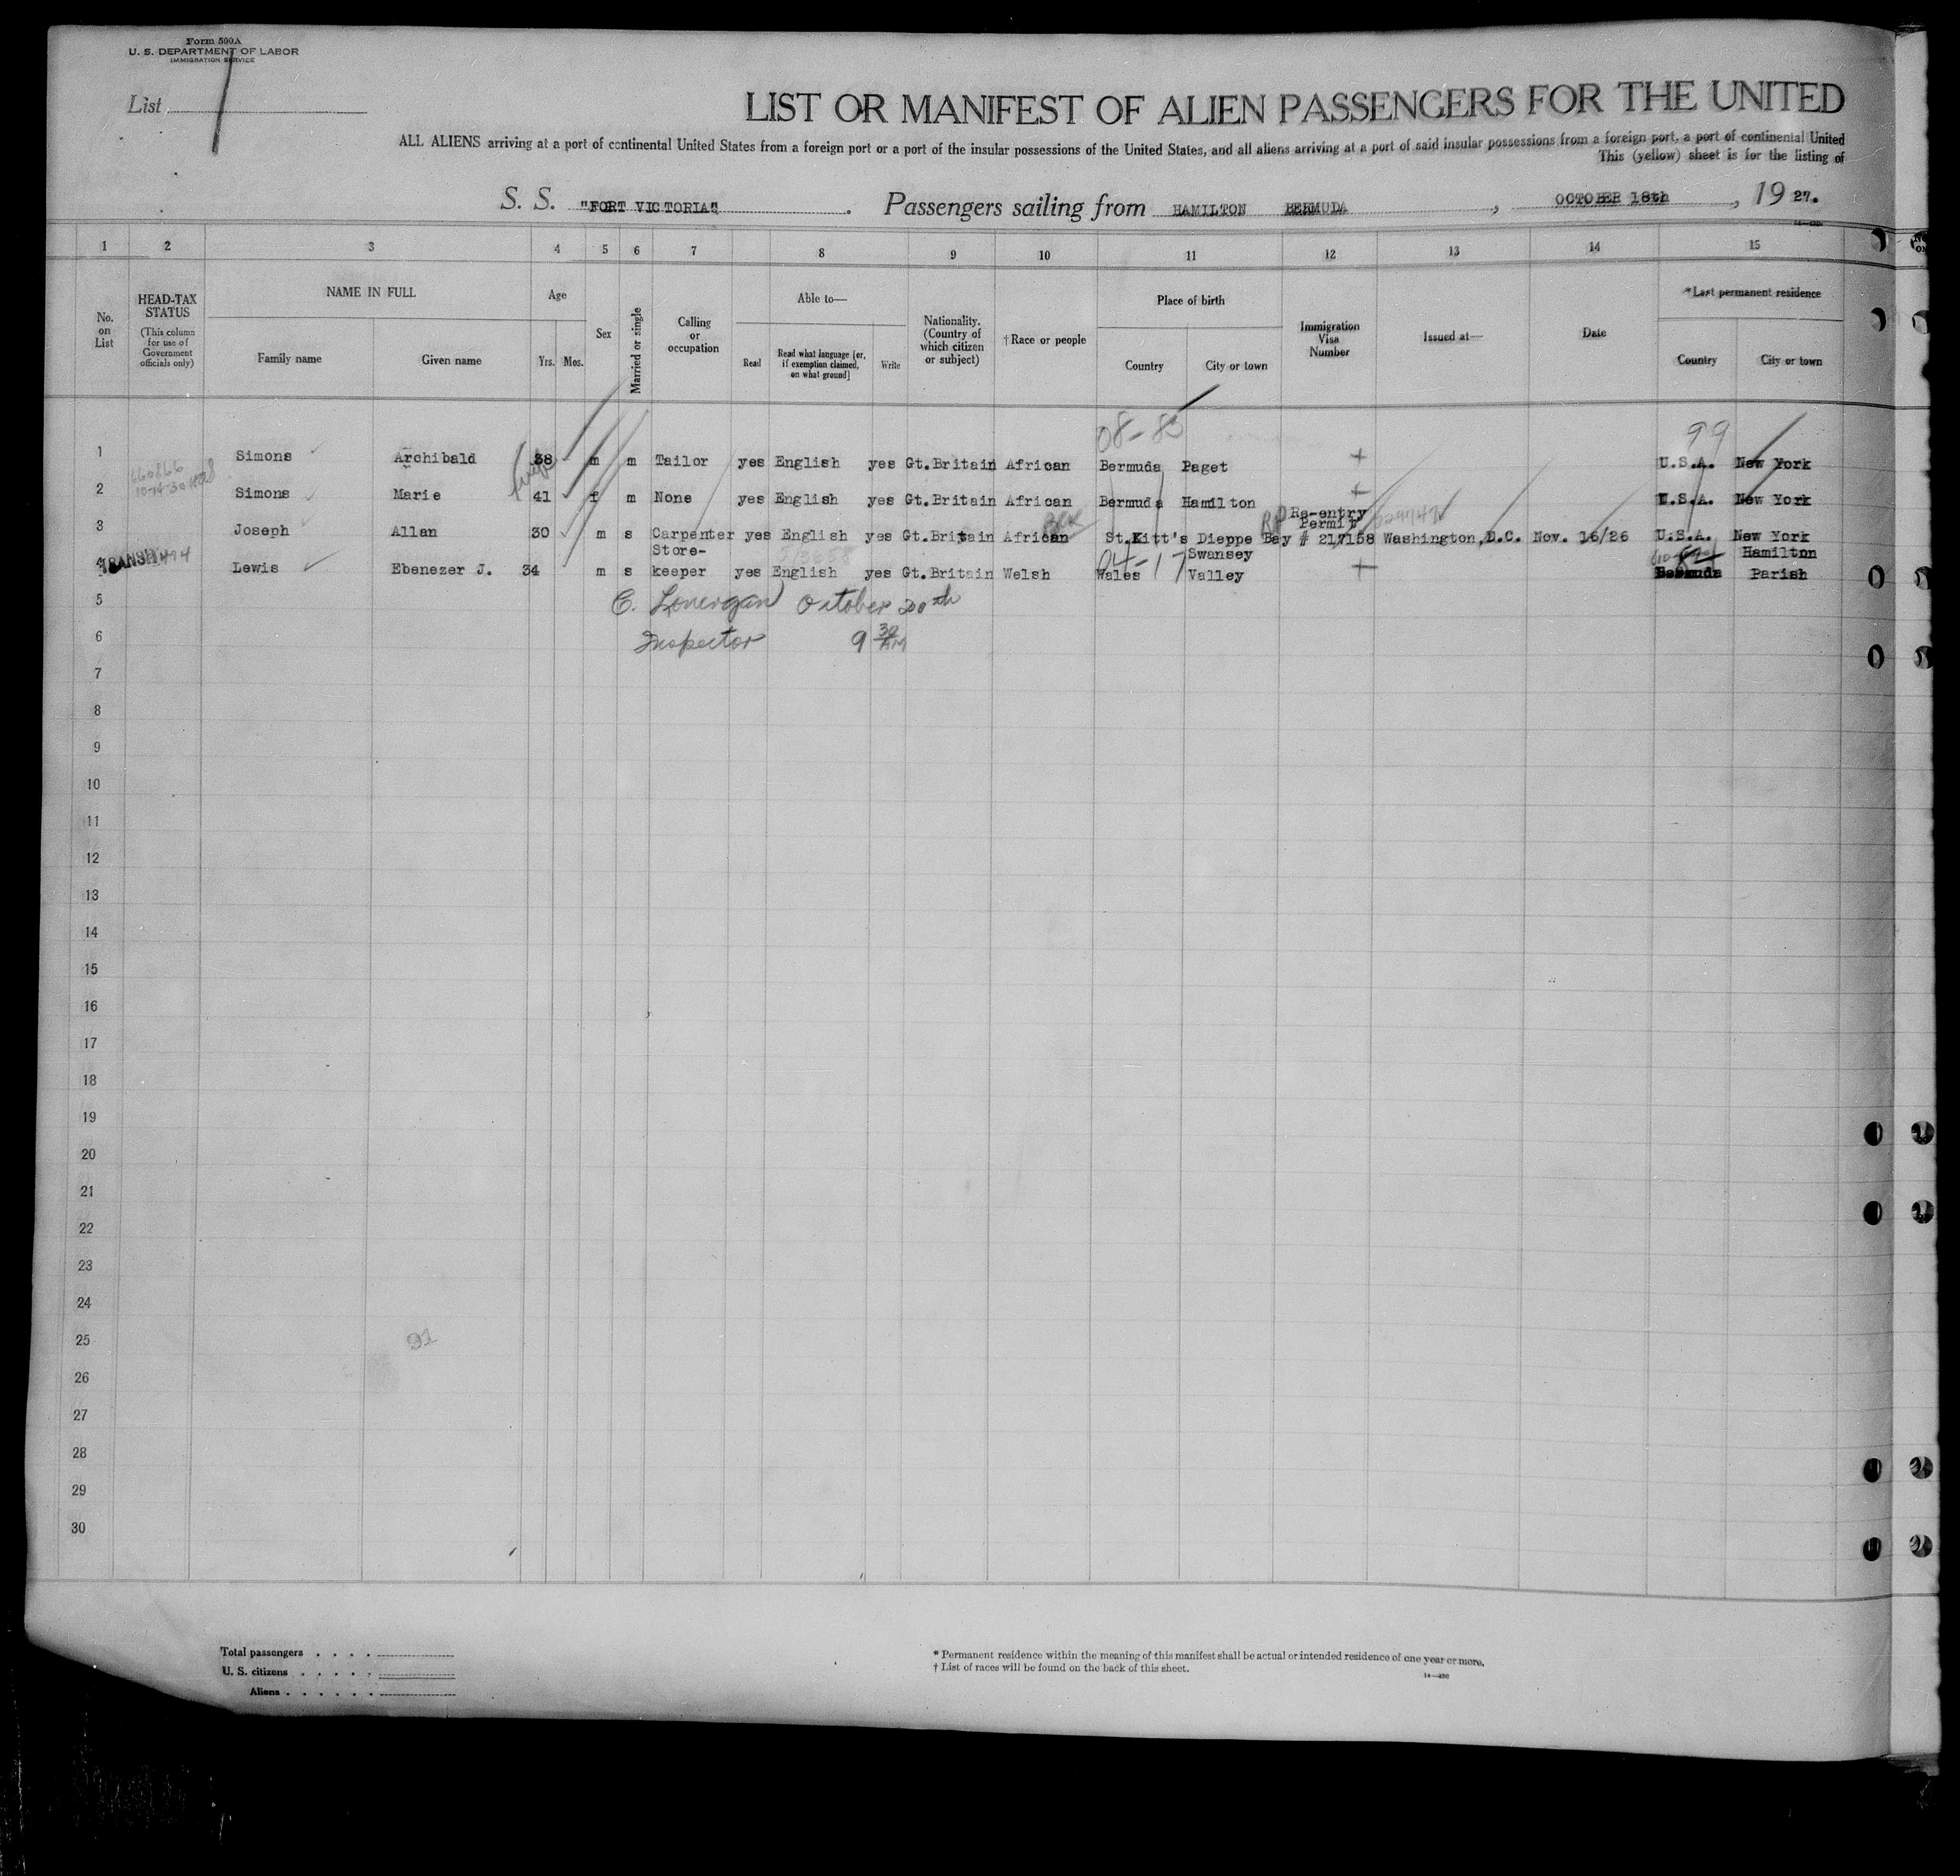 Form 500A
U. S. DEPARTMENT OF LABOR
IMMIGRATION SERVICE
List 1
LIST OR MANIFEST OF ALIEN PASSENGERS FOR THE UNITED
ALL ALIENS arriving at a port of continental United States from a foreign port or a port of the insular possessions of the United States, and all aliens arriving at a port of said insular possessions from a foreign port, a port of continental United
This (yellow) sheet is for the listing of
S. S. "FORT VICTORIA". Passengers sailing from HAMILTON BERMUDA, OCTOBER 18th, 19 27.
1 2 3 4 5 6 7 8 9 10 11 12 13 14 15
No. on List
HEAD-TAX STATUS
(This column for use of Government officials only)
NAME IN FULL
Family name Given name
Age
Yrs. Mos.
Sex
Married or single
Calling or occupation
Able to—
Read
Read what language [or, if exemption claimed, on what ground]
Write
Nationality. (Country of which citizen or subject)
†Race or people
Place of birth
Country City or town
Immigration Visa Number
Issued at—
Date
*Last permanent residence
Country City or town
08-83 99
1 Simons Archibald 38 m m Tailor yes English yes Gt.Britain African Bermuda Paget + U.S.A. New York
2 Simons Marie 41 f m None yes English yes Gt.Britain African Bermuda Hamilton + U.S.A. New York
Re-entry
Permit
3 Joseph Allan 30 m s Carpenter yes English yes Gt.Britain African St.Kitt's Dieppe Bay # 217158 Washington,D.C. Nov. 16/26 U.S.A. New York
TRANSIT Store- 04-17 Swansey Hamilton
4 Lewis Ebenezer J. 34 m s keeper yes English yes Gt.Britain Welsh Wales Valley + Bermuda Parish
5 C. Lonergan October 20th
6 Inspector 9 30 AM
7
8
9
10
11
12
13
14
15
16
17
18
19
20
21
22
23
24
25
91
26
27
28
29
30
Total passengers
U. S. citizens
Aliens
* Permanent residence within the meaning of this manifest shall be actual or intended residence of one year or more.
† List of races will be found on the back of this sheet.